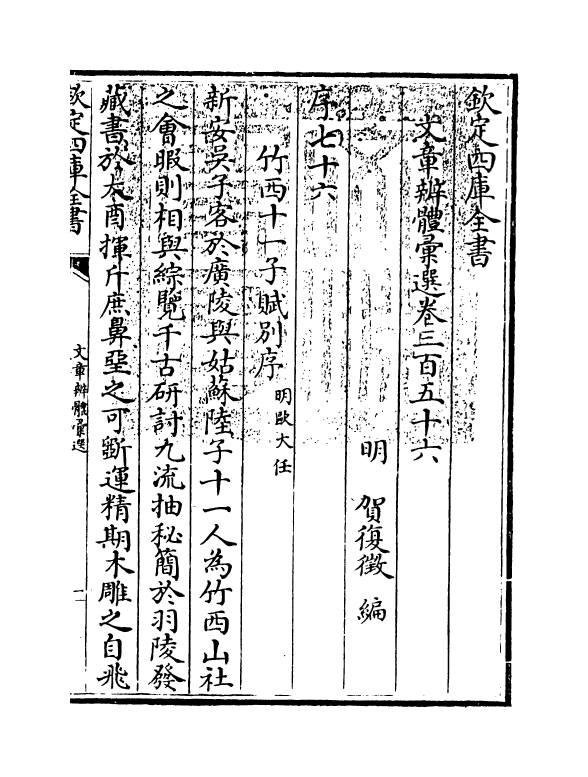 欽定四庫全書
文章辨體彙選卷三百五十六
明 賀復徵 編
序七十六
竹西十一子賦別序 明歐大任
新安吳子客於廣陵與姑蘇陸子十一人為竹西山社
之會暇則相與綜覽千古研討九流抽秘簡於羽陵發
藏書於太酉揮斤庶鼻堊之可斵運精期木雕之自飛
欽定四庫全書
文章辨體彙選
一